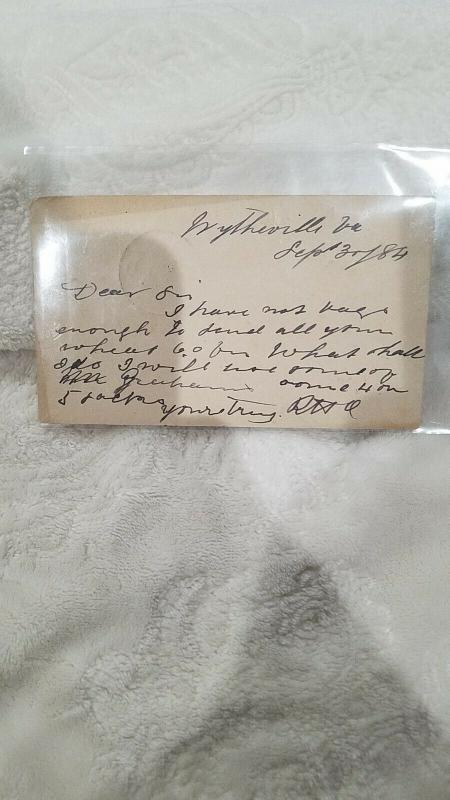 Wytheville Va
Sept 30/84
Dear Sir
I have not bags
enough to send all your
wheat 60 bu What shall
I do I will use some of
Mr Grahams some 4 or
5 sacks yours truly